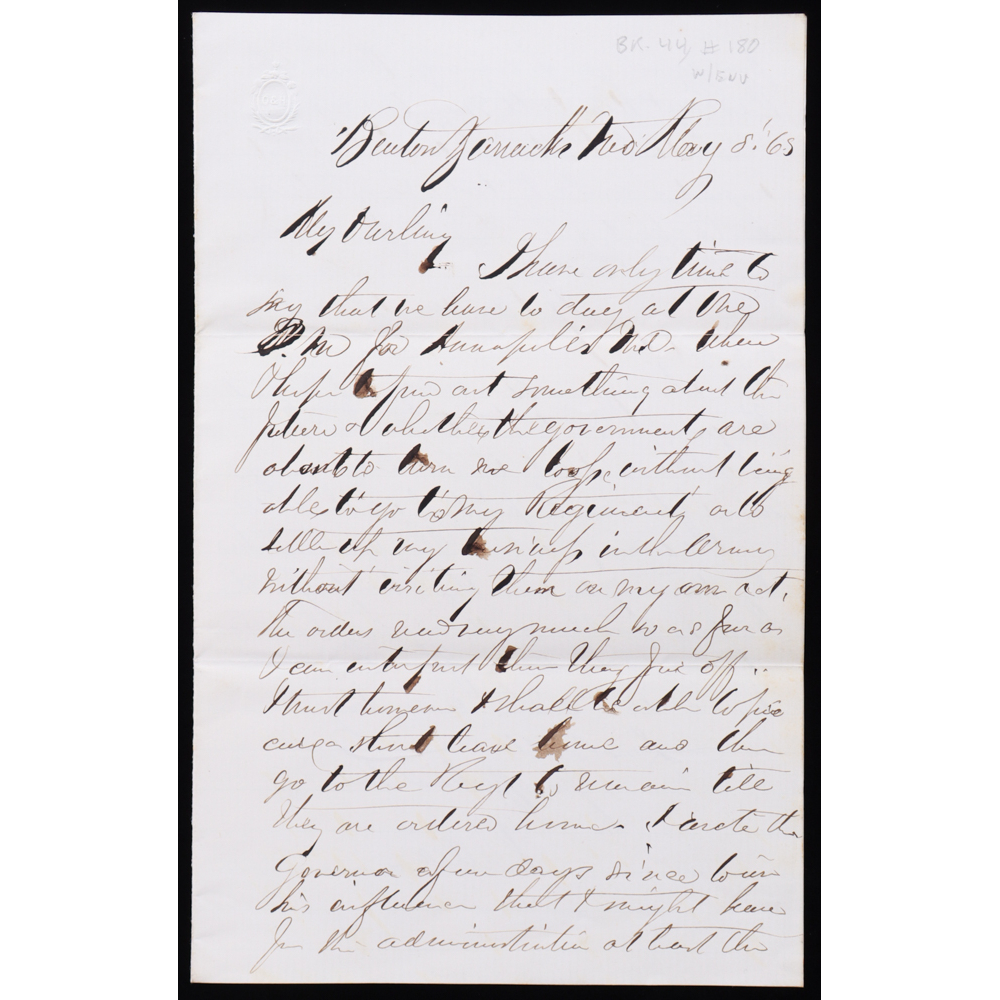 BK-44, # 180
w/Env
Benton Barracks Mo May 8. '65
My Darling
I have only time to
say that we leave to day at One
P. M for Annapolis Md. where
I hope to find out something about the
future & whether the government are
about to turn me loose, without being
able to go to my Regiment, or to
settle up my business in the Army
without visiting them on my own act.
The orders read very much so as far as
I can interpret them They
I trust however I shall be able to pro
cure a short leave home and then
go to the Regt to remain till
they are ordered home. I wrote the
Governor a few days since to use
his influence that I might have
for the administration at least the